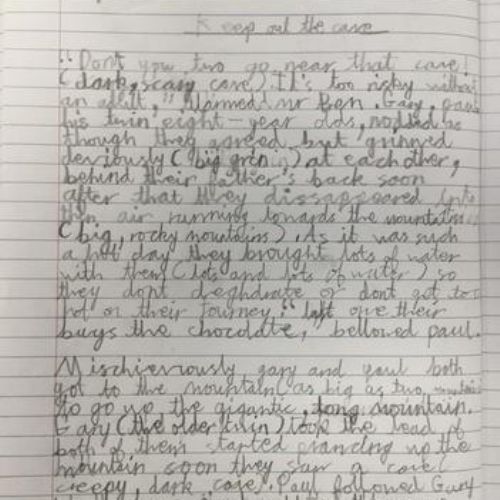 Keep out the cave
"Dont you two go near that cave!
(dark, scary cave) It's too risky without
an adult," Warned mr Ben. Gary, paul
his twin eight-year olds, nodded as
though they agreed but grinned
deviously (big grin) at each other,
behind their father's back soon
after that they dissapeared into
thin air running towards the mountains
(big, rocky mountains). As it was such
a hot day they brought lots of water
with them (lots and lots of water) so
they dont deghdrate or dont get to
hot on their journey. "last one their
buys the chocolate," bellowed paul.
Mischieviously, gary and paul both
got to the mountain( as big as two
to go up the gigantic, long mountain.
Gary (the older twin) took the lead of
both of them started up the
mountain soon they saw a cave(
creepy, dark cave). Paul followed Gary